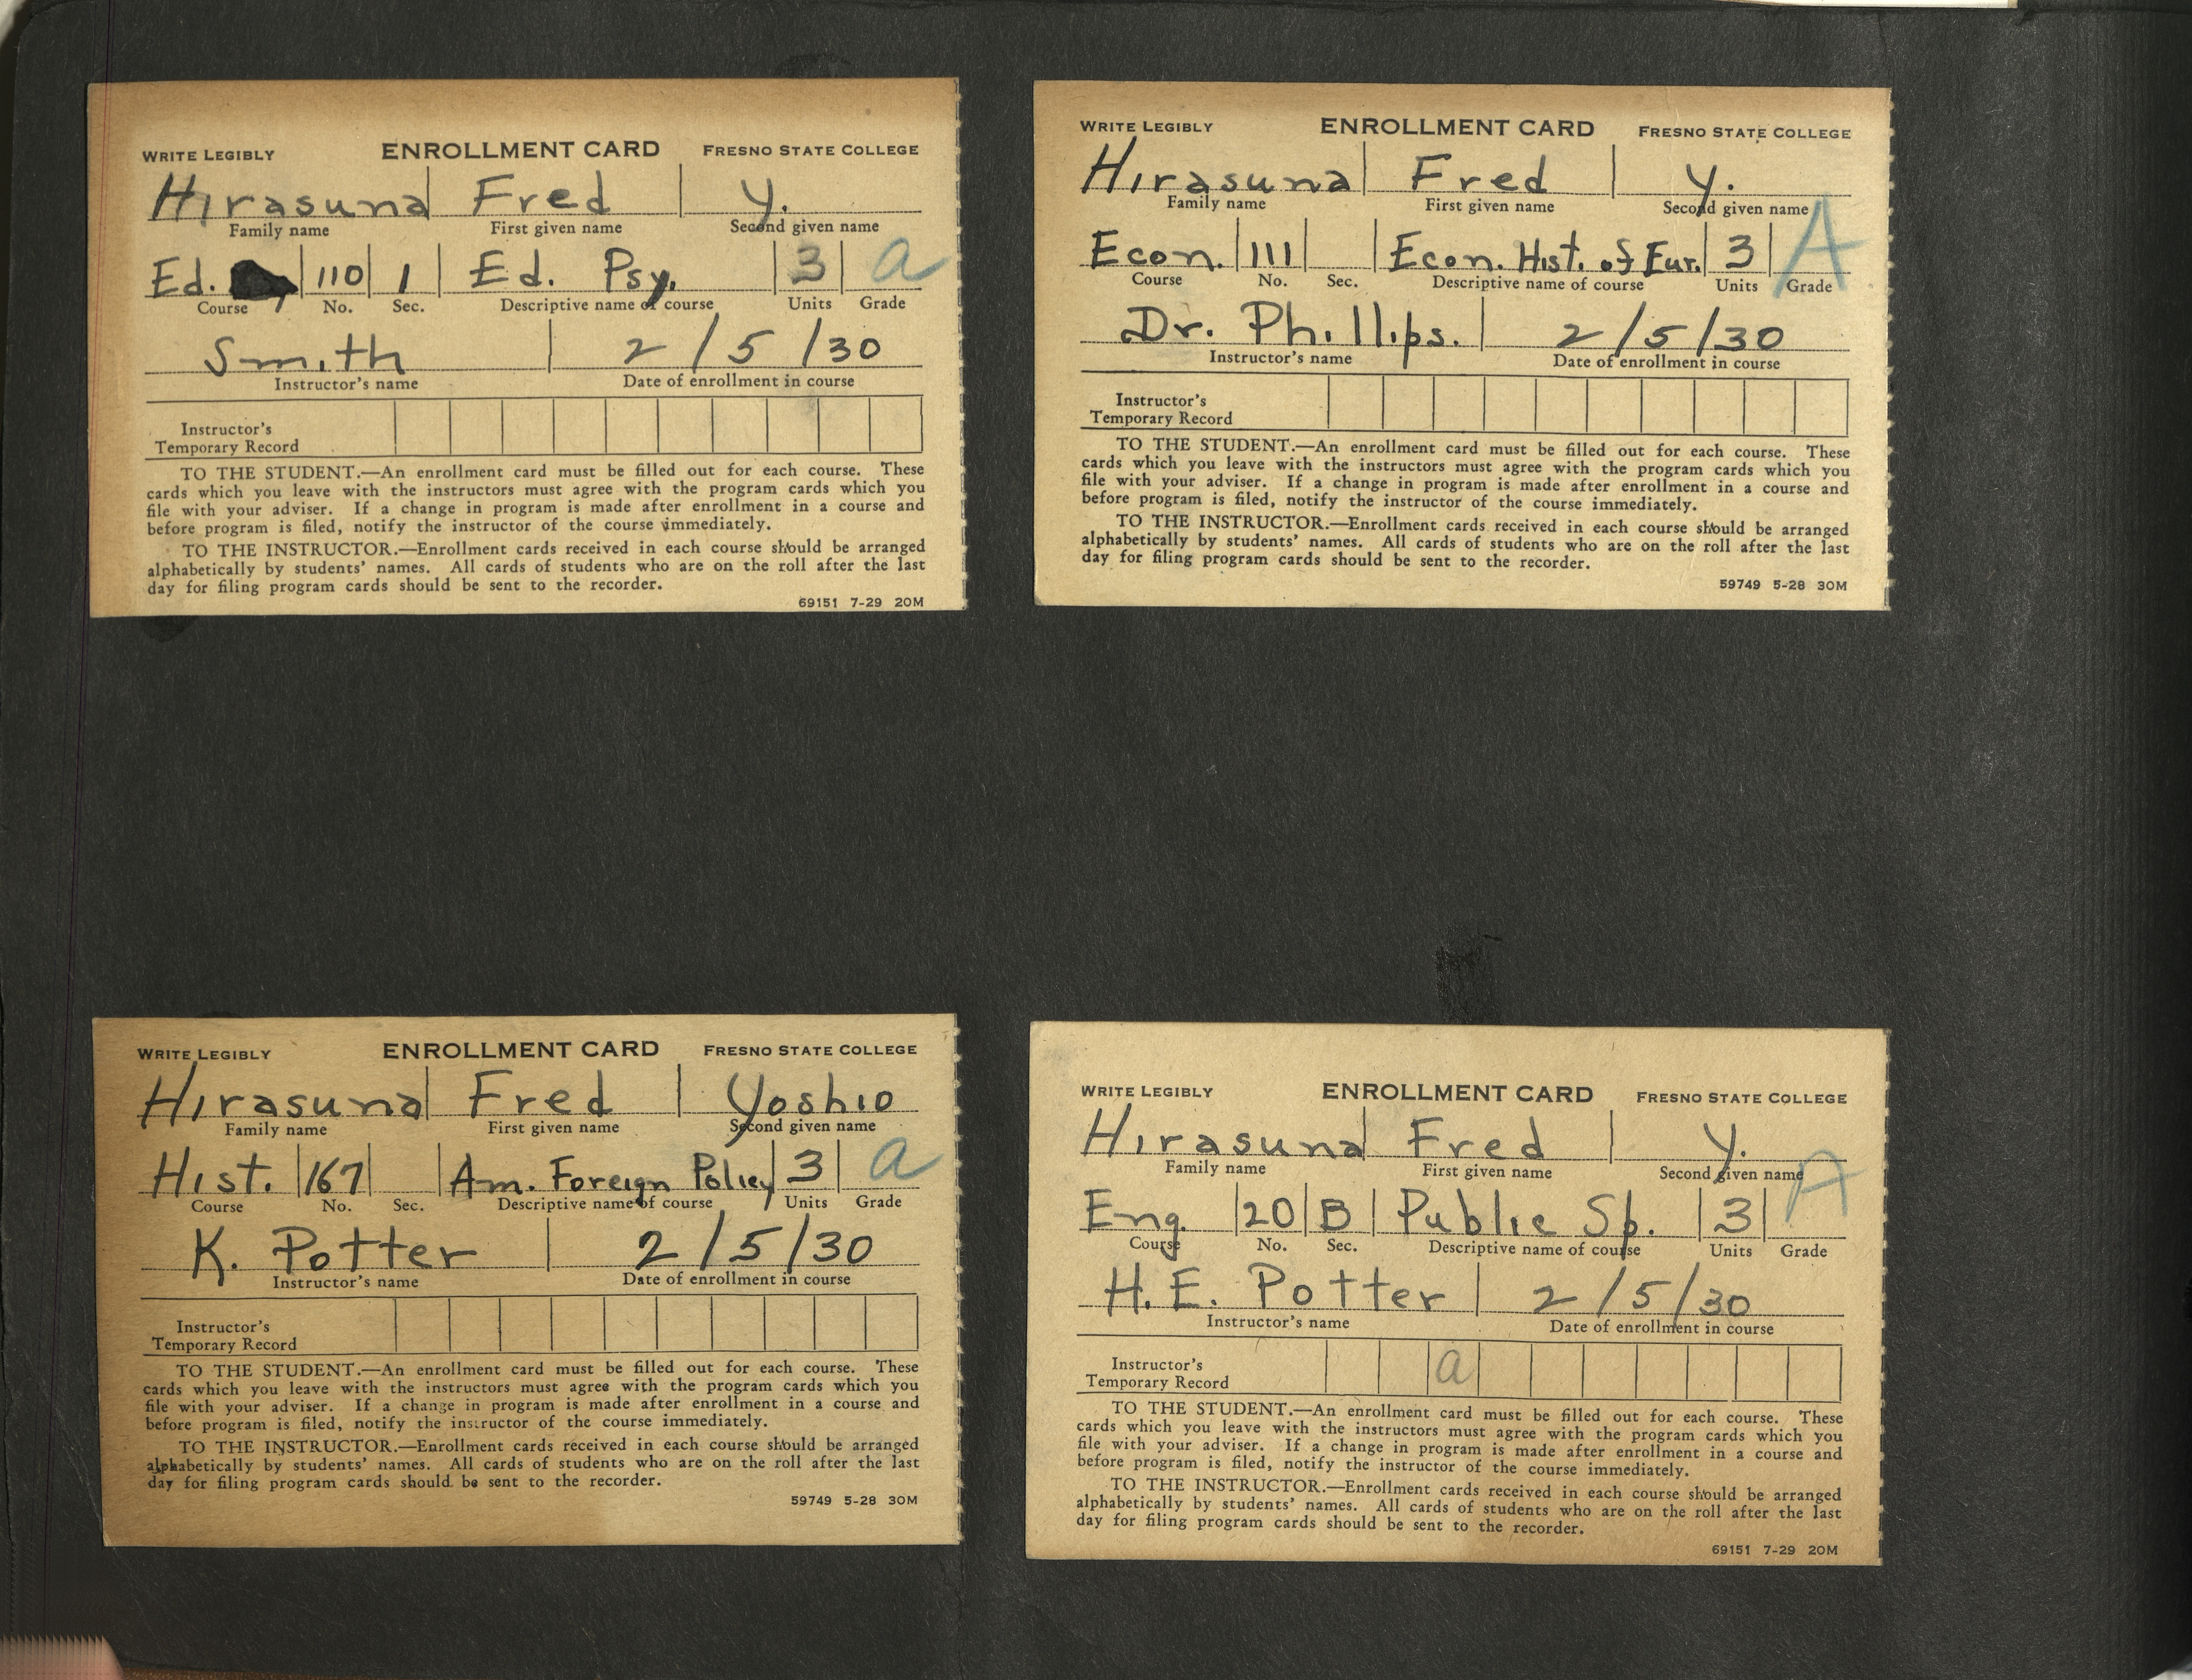 WRITE LEGIBLY ENROLLMENT CARD FRESNO STATE COLLEGE
Hirasuna Fred Y.
Family name First given name Second given name
Ed. 110 1 Ed. Psy. 3 a
Course No. Sec. Descriptive name of course Units Grade
Smith 2/5/30
Instructor's name Date of enrollment in course
Instructor's
Temporary Record
TO THE STUDENT.—An enrollment card must be filled out for each course. These
cards which you leave with the instructors must agree with the program cards which you
file with your adviser. If a change in program is made after enrollment in a course and
before program is filed, notify the instructor of the course immediately.
TO THE INSTRUCTOR.—Enrollment cards received in each course should be arranged
alphabetically by students' names. All cards of students who are on the roll after the last
day for filing program cards should be sent to the recorder.
69151 7-29 20M
WRITE LEGIBLY ENROLLMENT CARD FRESNO STATE COLLEGE
Hirasuna Fred Y.
Family name First given name Second given name
Econ. 111 Econ. Hist. of Eur. 3 A
Course No. Sec. Descriptive name of course Units Grade
Dr. Phillips. 2/5/30
Instructor's name Date of enrollment in course
Instructor's
Temporary Record
TO THE STUDENT.—An enrollment card must be filled out for each course. These
cards which you leave with the instructors must agree with the program cards which you
file with your adviser. If a change in program is made after enrollment in a course and
before program is filed, notify the instructor of the course immediately.
TO THE INSTRUCTOR.—Enrollment cards received in each course should be arranged
alphabetically by students' names. All cards of students who are on the roll after the last
day for filing program cards should be sent to the recorder.
59749 5-28 30M
WRITE LEGIBLY ENROLLMENT CARD FRESNO STATE COLLEGE
Hirasuna Fred Yoshio
Family name First given name Second given name
Hist. 167 Am. Foreign Policy 3 a
Course No. Sec. Descriptive name of course Units Grade
K. Potter 2/5/30
Instructor's name Date of enrollment in course
Instructor's
Temporary Record
TO THE STUDENT.—An enrollment card must be filled out for each course. These
cards which you leave with the instructors must agree with the program cards which you
file with your adviser. If a change in program is made after enrollment in a course and
before program is filed, notify the instructor of the course immediately.
TO THE INSTRUCTOR.—Enrollment cards received in each course should be arranged
alphabetically by students' names. All cards of students who are on the roll after the last
day for filing program cards should be sent to the recorder.
59749 5-28 30M
WRITE LEGIBLY ENROLLMENT CARD FRESNO STATE COLLEGE
Hirasuna Fred Y.
Family name First given name Second given name
Eng. 20 B Public Sp. 3 A
Course No. Sec. Descriptive name of course Units Grade
H. E. Potter 2/5/30
Instructor's name Date of enrollment in course
Instructor's a
Temporary Record
TO THE STUDENT.—An enrollment card must be filled out for each course. These
cards which you leave with the instructors must agree with the program cards which you
file with your adviser. If a change in program is made after enrollment in a course and
before program is filed, notify the instructor of the course immediately.
TO THE INSTRUCTOR.—Enrollment cards received in each course should be arranged
alphabetically by students' names. All cards of students who are on the roll after the last
day for filing program cards should be sent to the recorder.
69151 7-29 20M